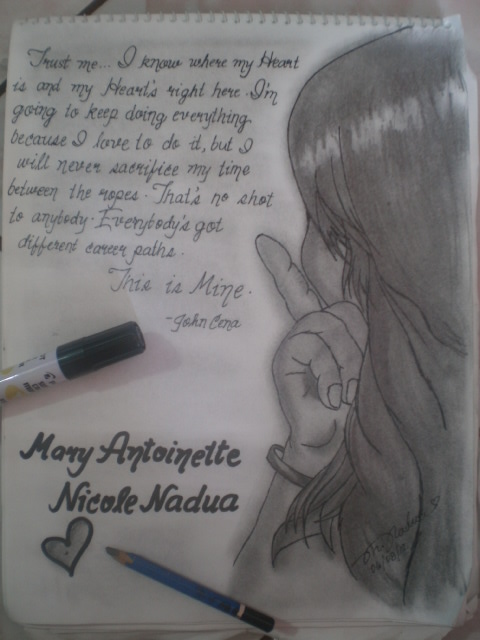 Trust me... I know where my Heart
is and my Heart's right here. I'm
going to keep doing everything
because I love to do it, but I
will never sacrifice my time
between the ropes. That's no shot
to anybody. Everybody's got
different career paths.
This is Mine.
-John Cena
Mary Antoinette
Nicole Nadua